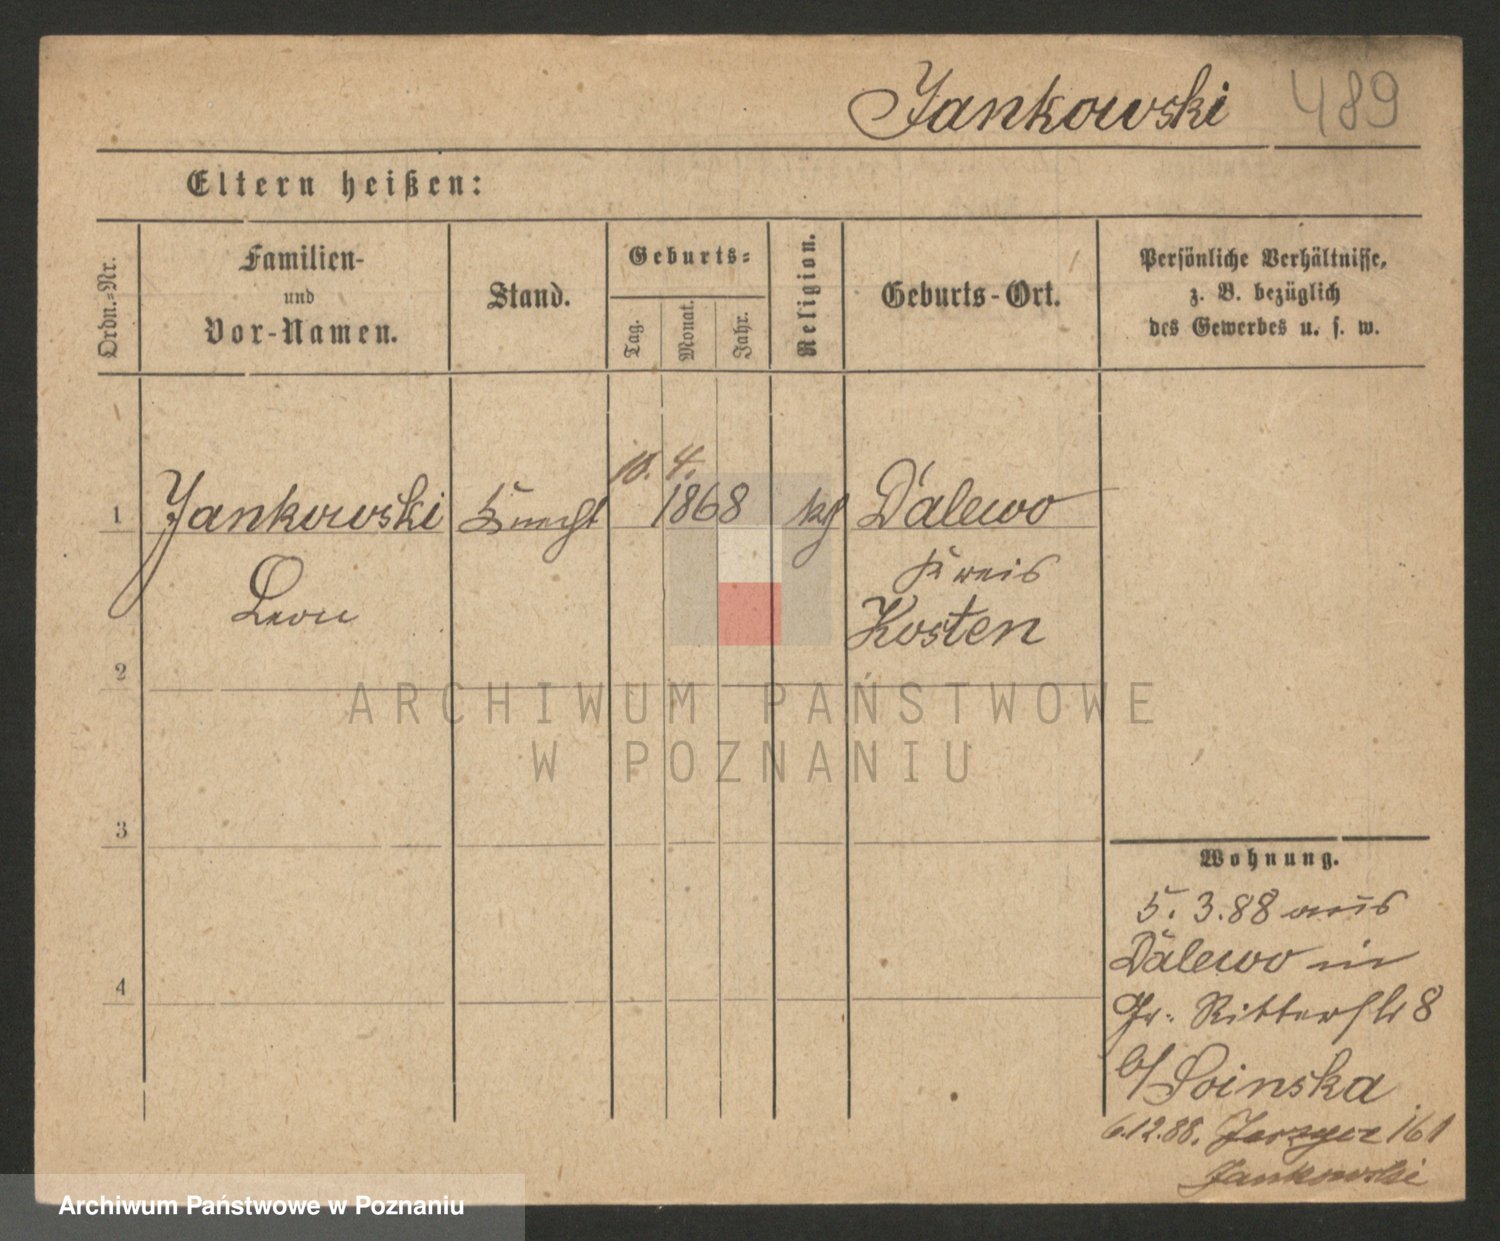 Jankowski 489
Eltern heißen:
Ordn.-Nr.
Familien-
und
Vor-Namen.
Stand.
Geburts-
Tag.
Monat.
Jahr.
Religion.
Geburts-Ort.
Persönliche Verhältnisse,
z. B. bezüglich
des Gewerbes u. s. w.
10. 4.
1 Jankowski Knecht 1868 kth Dalewo
Leon
Kreis
Kosten
2
3
4
Wohnung.
5. 3. 88 aus
Dalewo in
Gr. Ritterstr 8
b/ Soinska
6.12.88. 161
Jankowski
ARCHIWUM PAŃSTWOWE
W POZNANIU
Archiwum Państwowe w Poznaniu